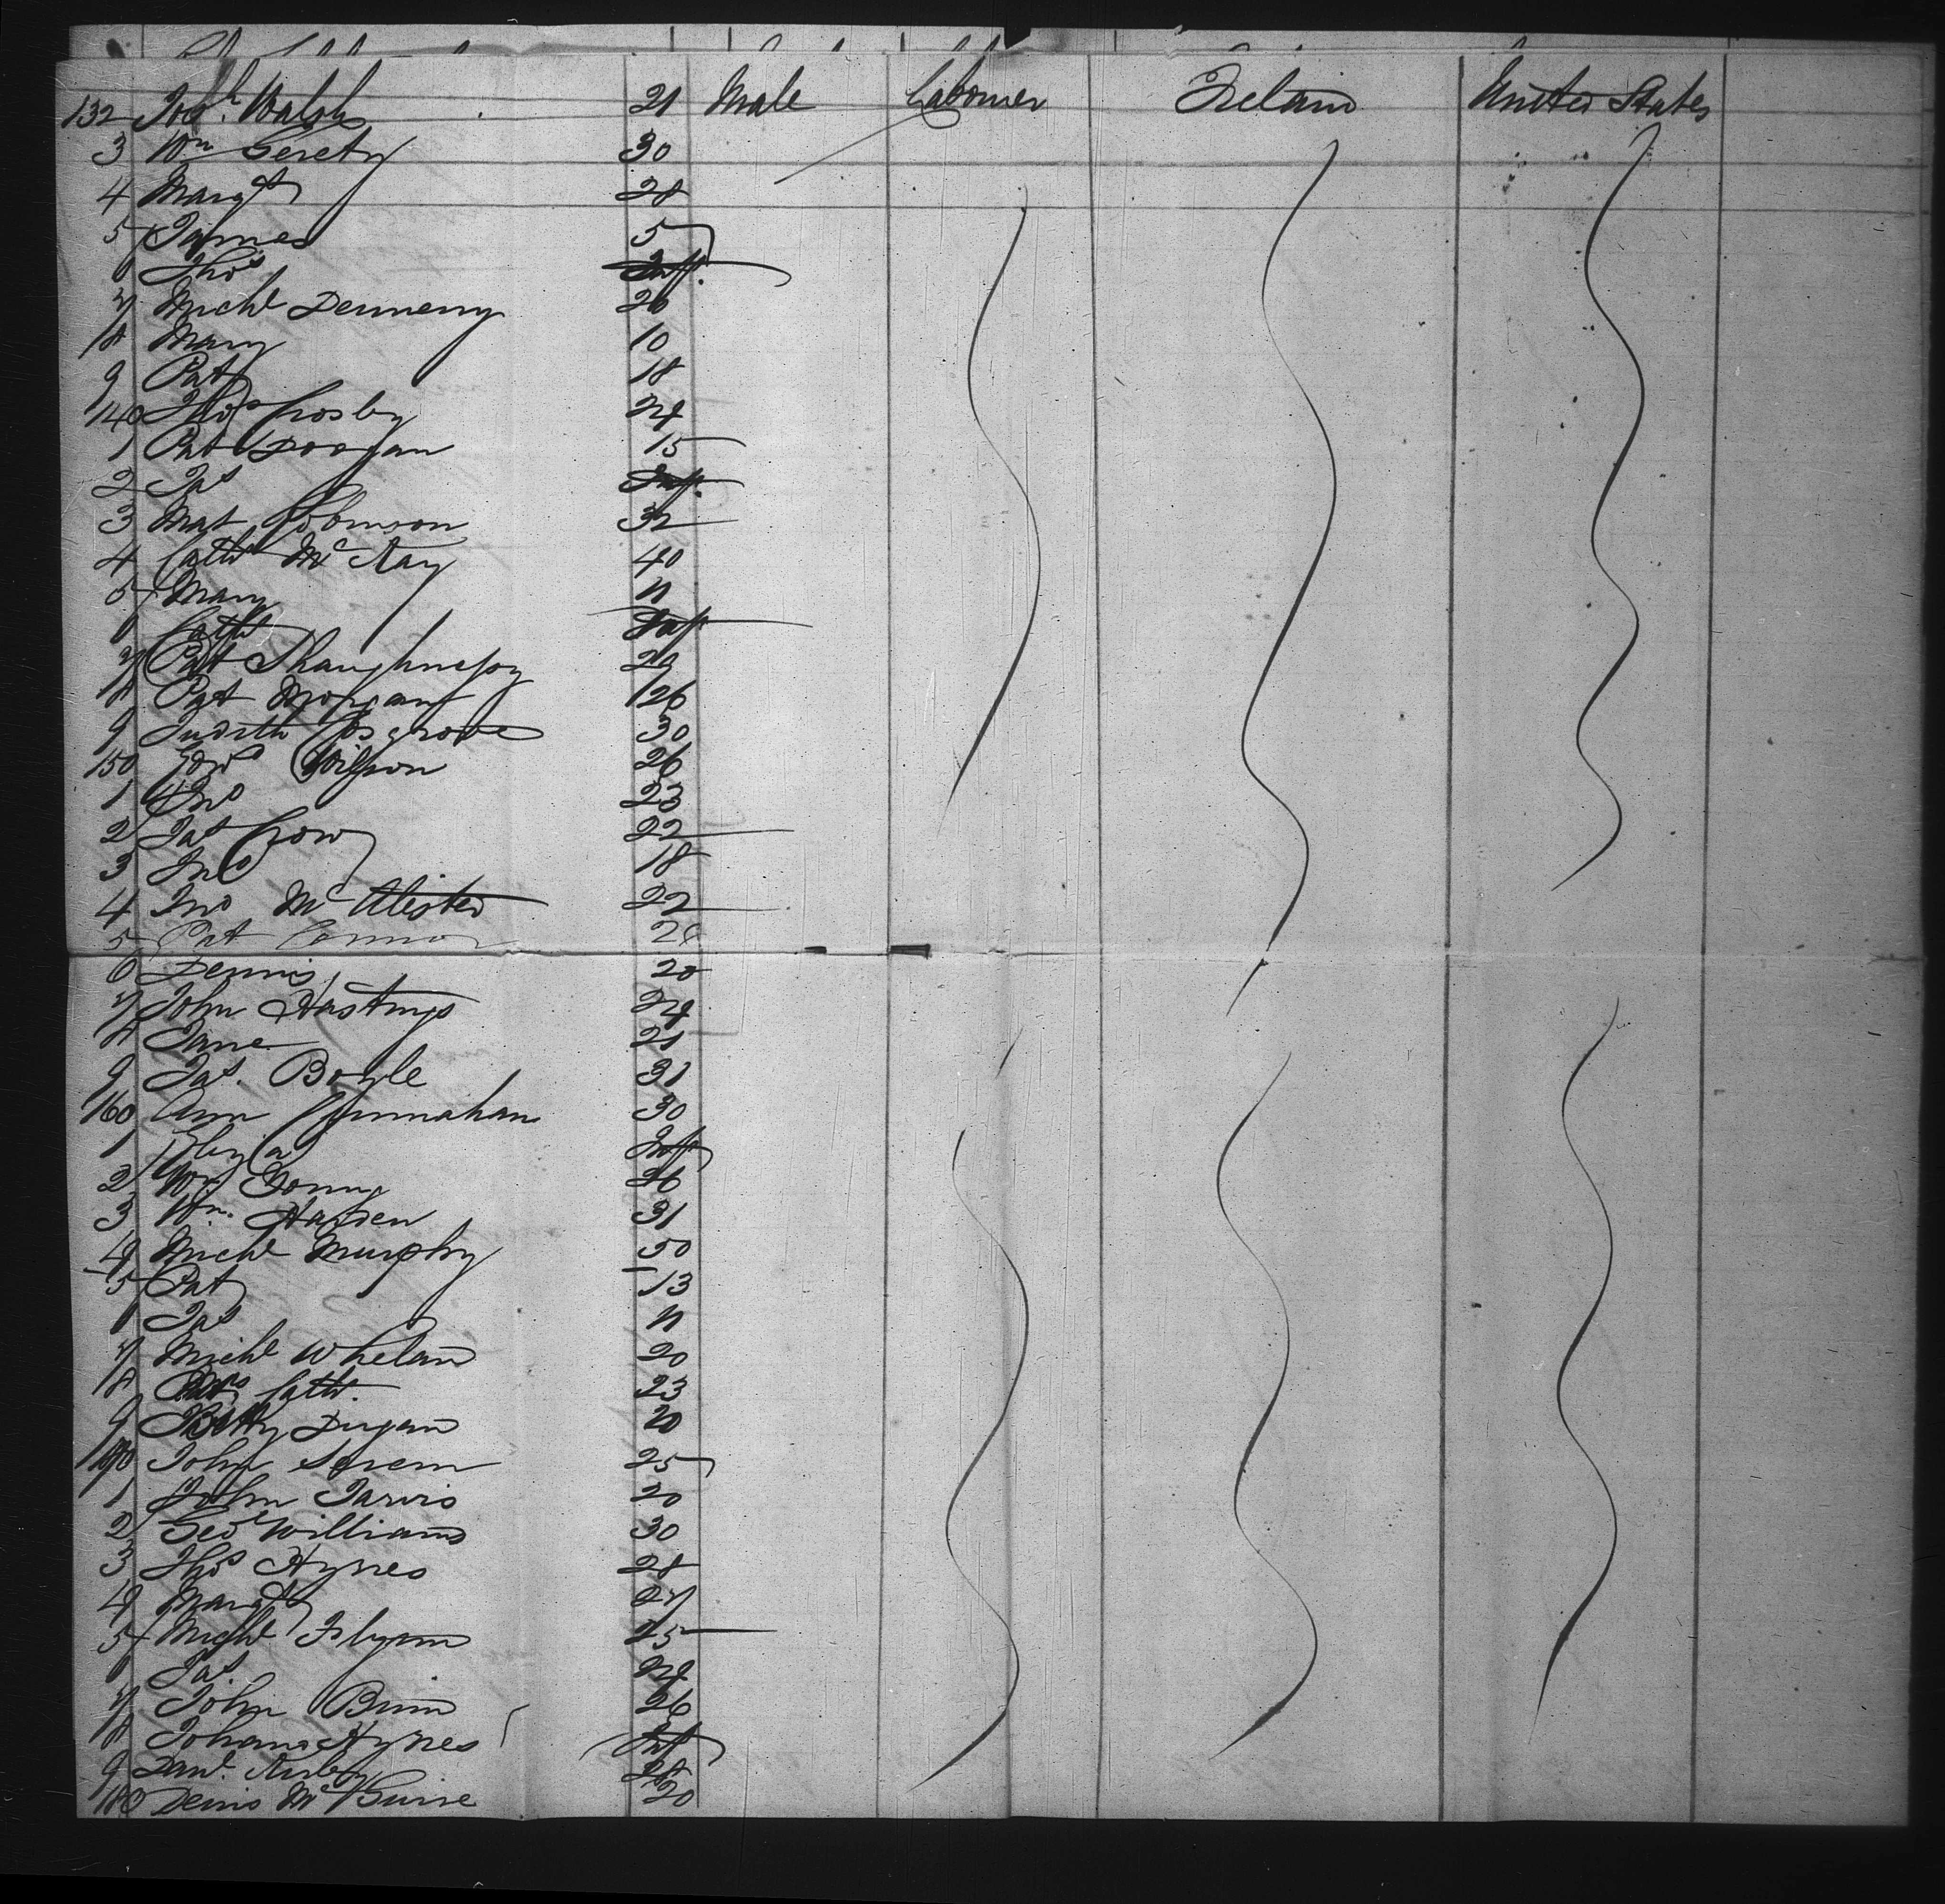 132 Jos.h Walsh 21 Male Labourer Ireland United States
3 Wm Gerety 30
4 Margt 28
5 James 5
6 Thos Inft.
7 Michl Dennerry 26
8 Mary 10
9 Pat 18
140 Thos Crosby 24
1 Pat Doogan 15
2 Jas Inft.
3 Mat Robinson 32
4 Cath Mc Kay 40
5 Mary 11
6 Cath Inft
7 Pat Shaughnessy 29
8 Pat Morgan 26
9 Judith Cosgrove 30
150 Edwd Wilson 26
1 Jno 23
2 Jas Crow 22
3 Jno 18
4 Jno Mc Alister 22
5 Pat Connor
6 Dennis 20
7 John Hastings 24
8 Jane 21
9 Jas. Boyle 31
160 Ann 30
1 Eliza Inft
2 Wm 26
3 Wm. Harden 31
4 Michl Murphy 50
5 Pat 13
6 Jas 11
7 Michl Whelan 20
8 Cath. 23
9 Betty Dugan 20
170 John 25
1 John Jarvis 20
2 Geo Williams 30
3 Thos Hynes 28
4 Margt 27
5 Michl Flynn 25
6 Jas. 24
7 John Binn 26
8 Johana Hynes Inft
9 Danl. Kirby 28
180 Denis Mc Guire 20